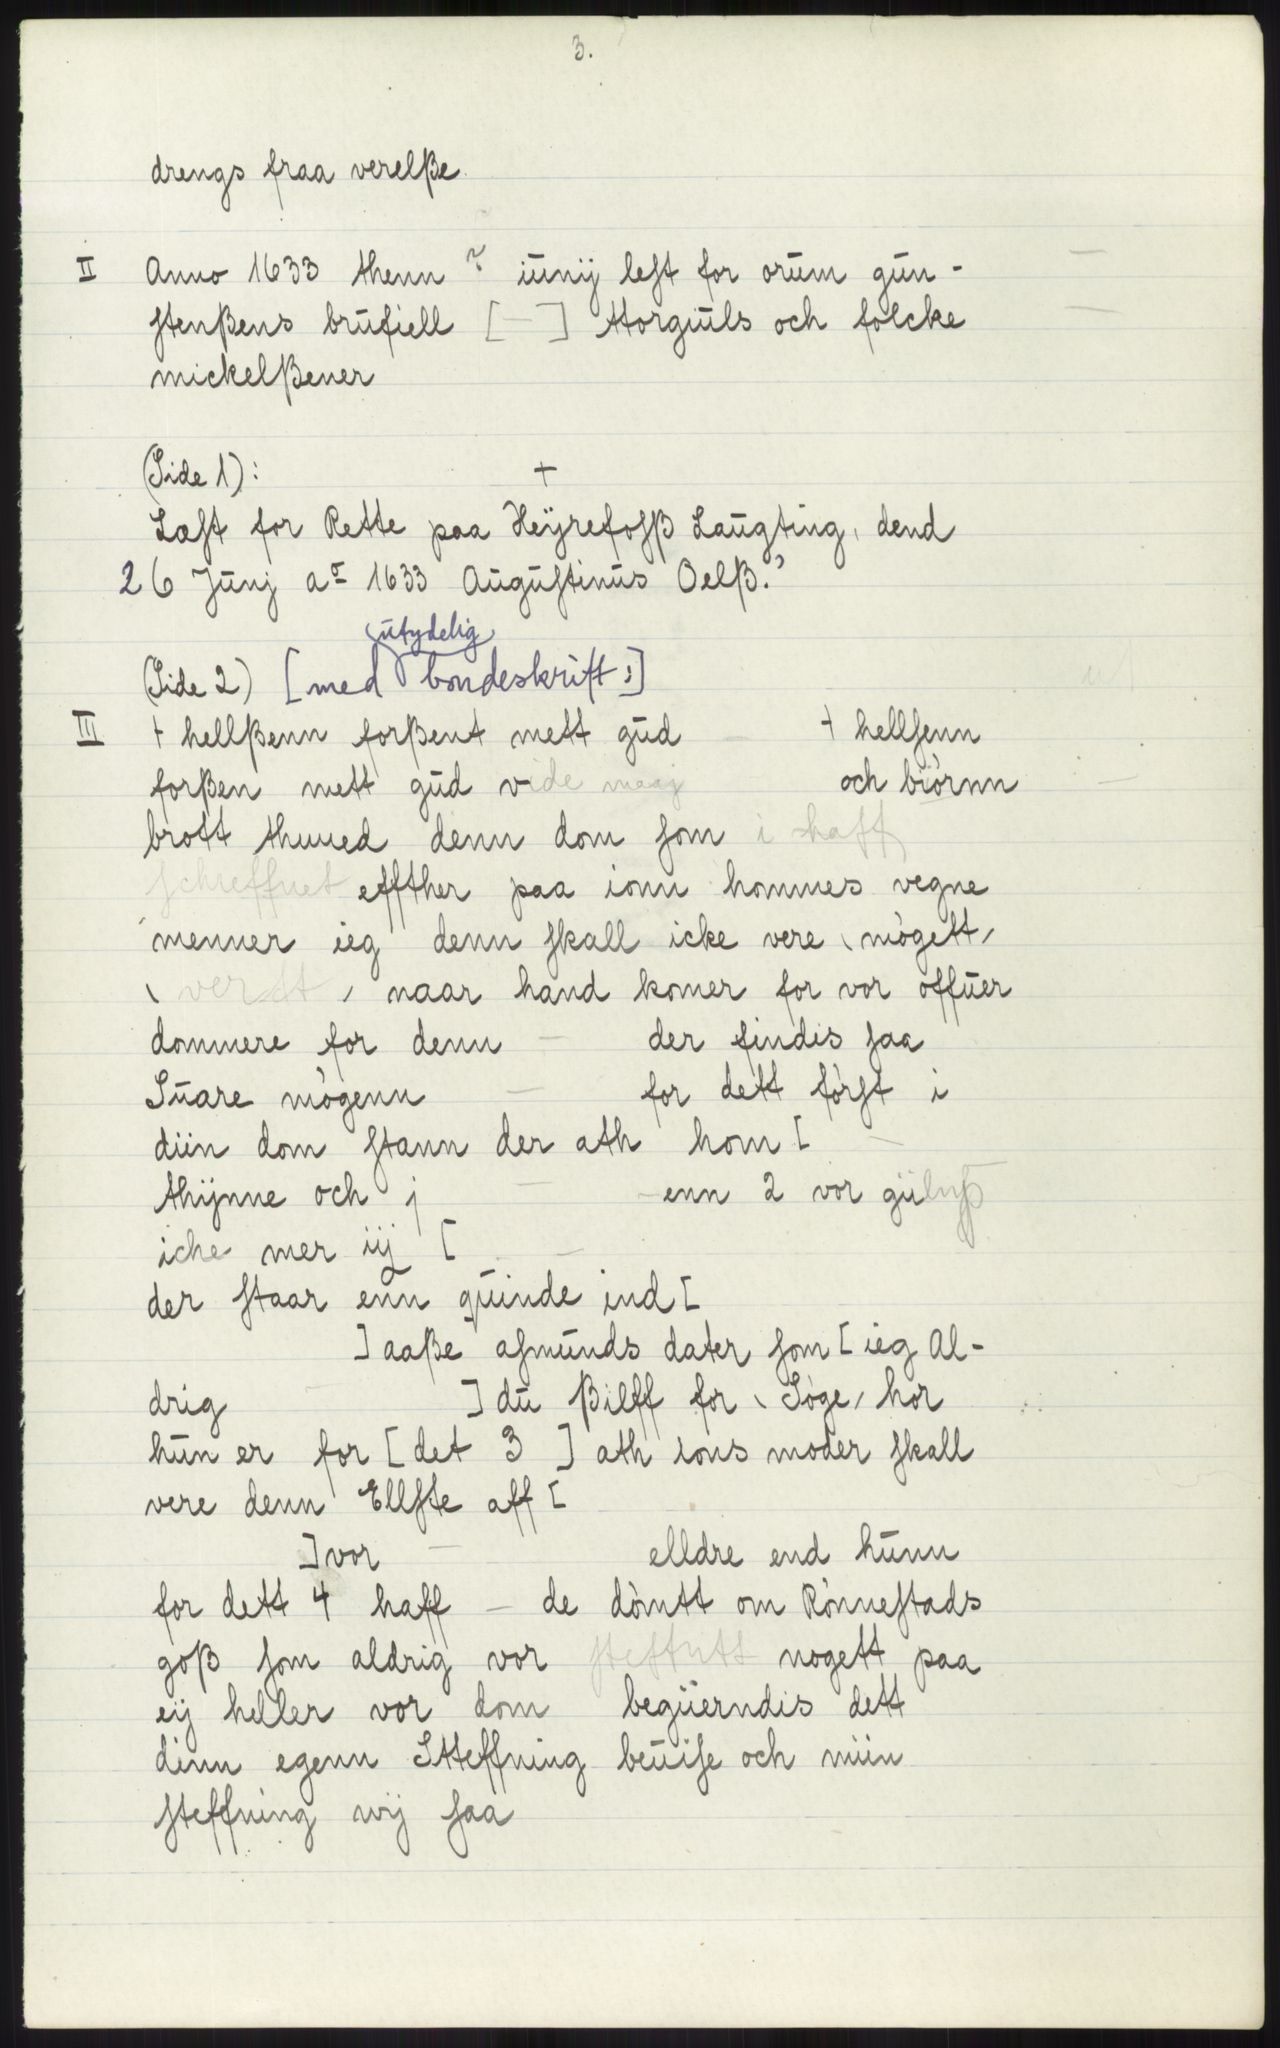 3.
drengs fraa verelße
II Anno 1633 thenn ? iunij lest for orum gun-
stenßens brufiell [ — ] ttorgiuls och folcke
mickelßener
(Side 1): +
Læst for Rette paa Heÿrefosß Laugting, dend
26 Junj ao 1633 Augustinus Oelß.'
utydelig
(Side 2) [med bondeskrift:]
III + hellßenn forßent mett gud — + hellsenn
forßen mett gud vide maaj och biòrnn —
brott thuued denn dom som i haff
schreffuet effther paa ionn hommes vegne
menner ieg denn skall icke vere mògett,
naar hand komer for vor offuer
dommere for denn — der findis saa
Suare mògenn — for dett fòrst i
diin dom stann der ath hom [ —
thijnne och j — enn 2 vor
iche mer iij [ —
der staar enn quinde ind [
] aaße asmunds dater som [ ieg Al-
drig ] du ßilff for Sòge, hor
hun er for [ det 3 ] ath ions moder skall
vere denn Ellste aff [
] vor — elldre end hunn
for dett 4 haff — de dòmtt om Rònnestads
goß som aldrig vor steffntt nogett paa
eij heller vor dom beguerndis dett
dinn egenn Stteffning beuise och miin
steffning wij saa